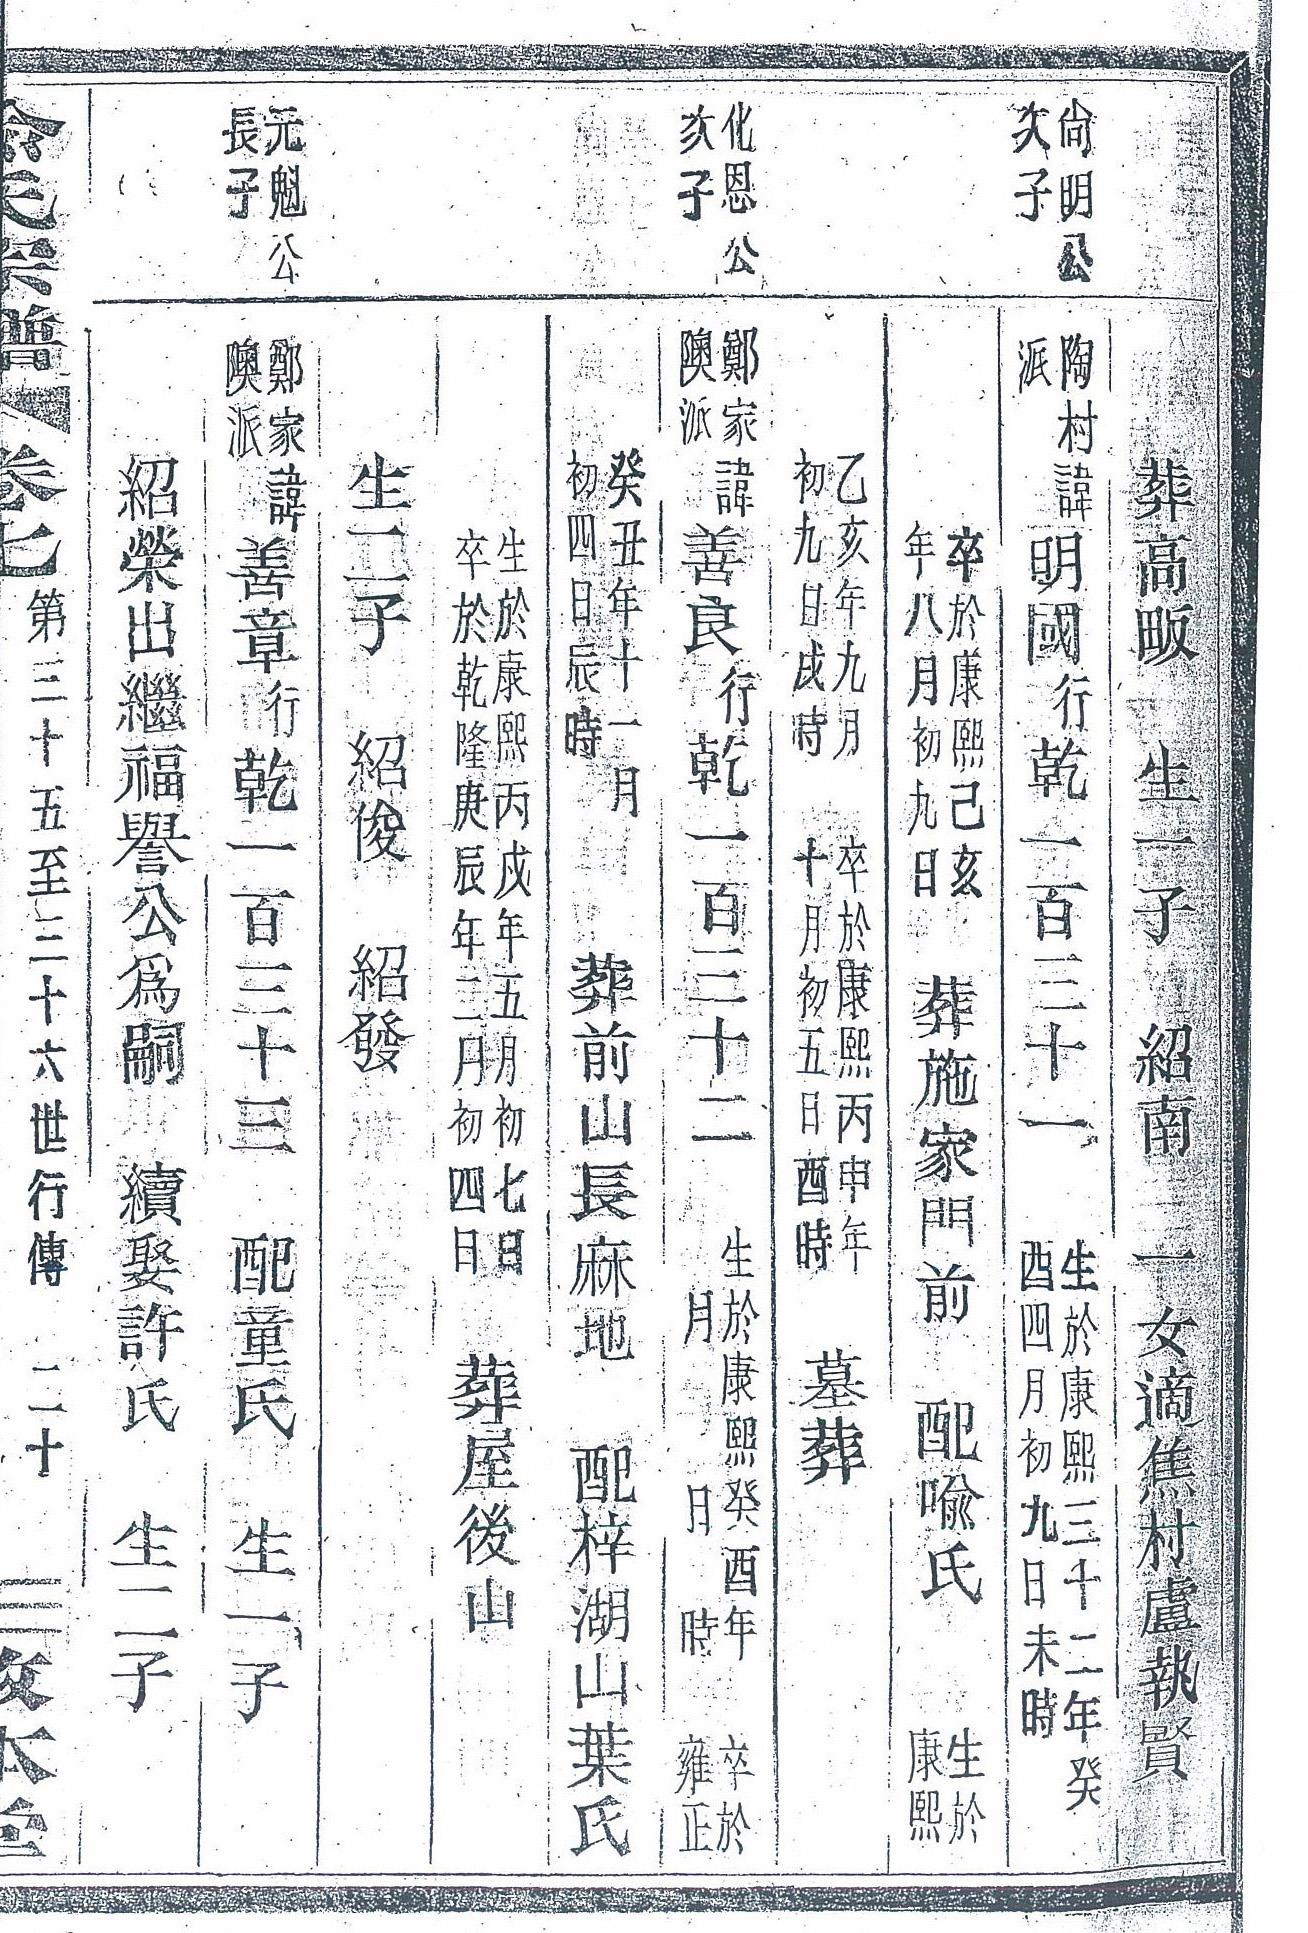 葬高畈 生一子 紹南 一女適焦村盧執賢
尙明公
次子
陶村
派
諱明國行乾一百三十一 生於康熙三十二年癸
酉四月初九日未時
卒於康熙己亥
年八月初九日 葬施家門前 配喩氏 生於
康熙
乙亥年九月
初九日戌時 卒於康熙丙申年
十月初五日酉時 墓葬
化恩公
次子
鄭家
隩派
諱善良行乾一百三十二 生於康熙癸酉年
月 日 時 卒於
雍正
癸丑年十一月
初四日辰時 葬前山長麻地 配梓湖山葉氏
生於康熙丙戌年五月初七日
卒於乾隆庚辰年二月初四日 葬屋後山
生二子 紹俊 紹發
元魁公
長子
鄭家
隩派
諱善章行乾一百三十三 配童氏 生一子
紹榮出繼福譽公爲嗣 續娶許氏 生二子
氏宗譜 卷七 第三十五至三十六世行傳 二十 敦本堂